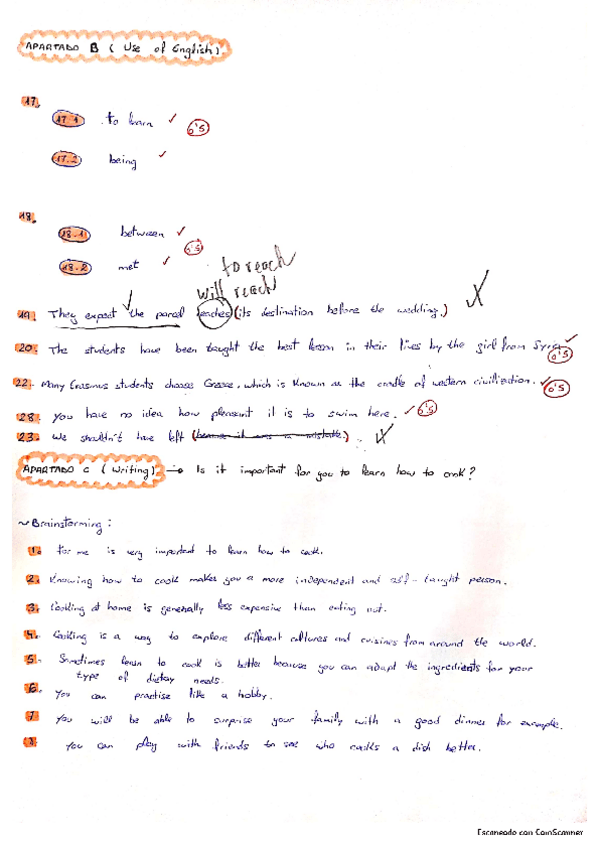 APARTADO B ( Use of English )
17.
17.1 to learn ✓ 0'5
17.2 being ✓
18.
18.1 between ✓ 0'5
18.2 met ✓
to reach
will reach
19. They expect the parcel reaches (its destination before the wedding.)
20. The students have been taught the best lesson in their lives by the girl from Syria 0'5
22. Many Erasmus students choose Greece, which is known as the cradle of western civilization. ✓ 0'5
28. You have no idea how pleasant it is to swim here. ✓ 0'5
23. We shouldn't have left (because it was a mistake.)
APARTADO C ( Writing ) → Is it important for you to learn how to cook?
~ Brainstorming :
1. For me is very important to learn how to cook.
2. Knowing how to cook makes you a more independent and self-taught person.
3. Cooking at home is generally less expensive than eating out.
4. Cooking is a way to explore different cultures and cuisines from around the world.
5. Sometimes learn to cook is better because you can adapt the ingredients for your
type of dietary needs.
6. You can practise like a hobby.
7. You will be able to surprise your family with a good dinner for example.
8. You can play with friends to see who cooks a dish better.
Escaneado con CamScanner